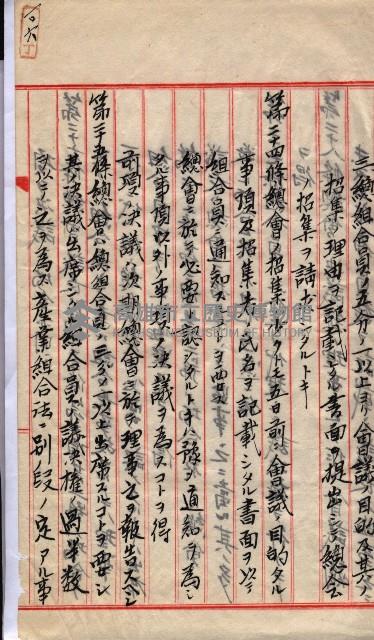 三 總組合員ノ五分ノ一以上ヨリ會議ノ目的及其ノ
招集ノ理由ヲ記載シタル書面ヲ提出シテ總會
ノ招集ヲ請求シタルトキ
第二十四條 總會ノ招集ハ少クトモ五日前ニ會議ノ目的タル
事項及招集者ノ氏名ヲ記載シタル書面ヲ以テ
組合員ニ通知スルコトヲ要ス
總會ニ於テ必要ト認メタルトキハ豫メ通知ヲ為シ
タル事項以外ノ事項ノ決議ヲ為スコトヲ得
前項ノ決議ハ次ノ總會ニ於テ理事之ヲ報告スベシ
第二十五條 總會ハ總組合員ノ三分ノ一以上出席スルコトヲ要シ
其決議ハ出席シタル組合員ノ議決權ノ過半數
ヲ以テ之ヲ為ス産業組合法ニ別段ノ定アル事
高雄市立歷史博物館
MUSEUM OF HISTORY